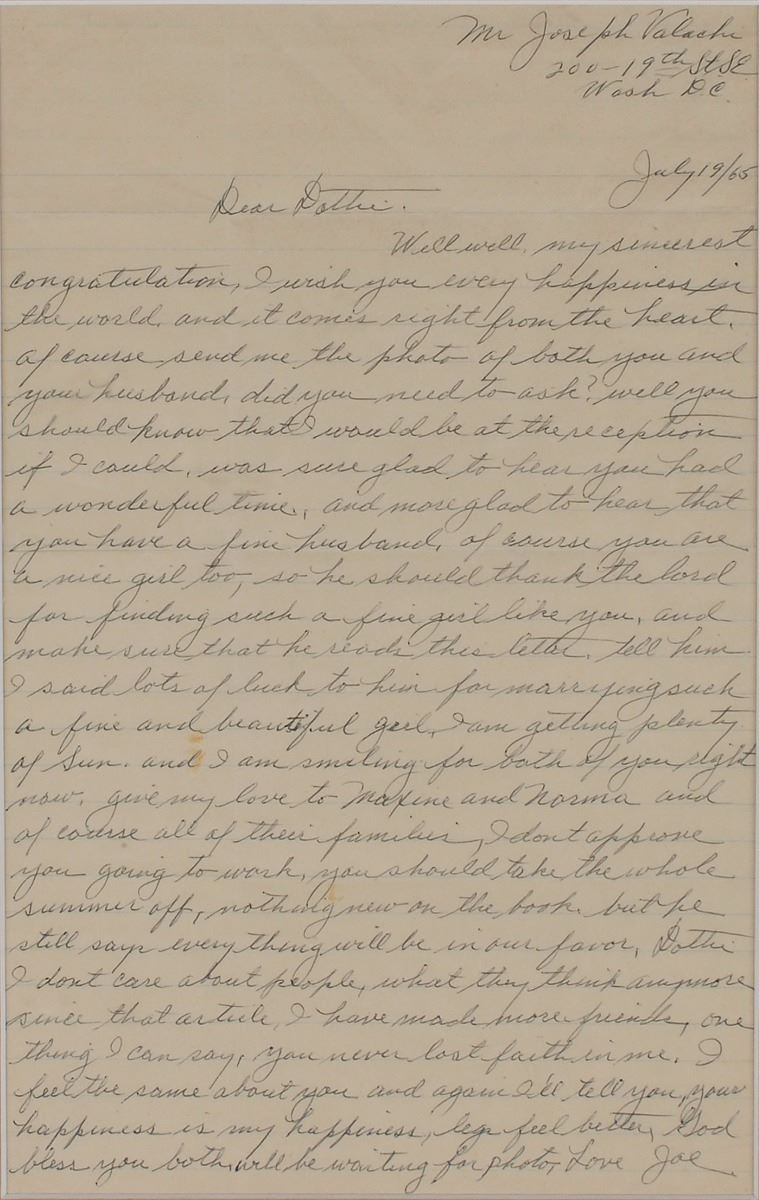 Mr Joseph Valachi
200-19th St SE
Wash D.C.
July 19/65
Dear Dottie.
Well well, my sincerest
congratulation, I wish you every happiness in
the world, and it comes right from the heart.
of course send me the photo of both you and
your husband, did you need to ask? well you
should know that I would be at the reception
if I could, was sure glad to hear you had
a wonderful time., and more glad to hear, that
you have a fine husband, of course you are
a nice girl too, so he should thank the lord
for finding such a fine girl like you, and
make sure that he reads this letter, tell him
I said lots of luck to him for marrying such
a fine and beautiful girl, I am getting plenty
of Sun. and I am smiling for both of you right
now, give my love to Maxine and Norma and
of course all of their families, I dont approve
you going to work, you should take the whole
summer off, nothing new on the book, but he
still says everything will be in our favor, Dottie
I dont care about people, what they think anymore
since that article, I have made more friends, one
thing I can say, you never lost faith in me. I
feel the same about you and again I'll tell you, your
happiness is my happiness, legs feel better, God
bless you both, will be waiting for photo, Love Joe